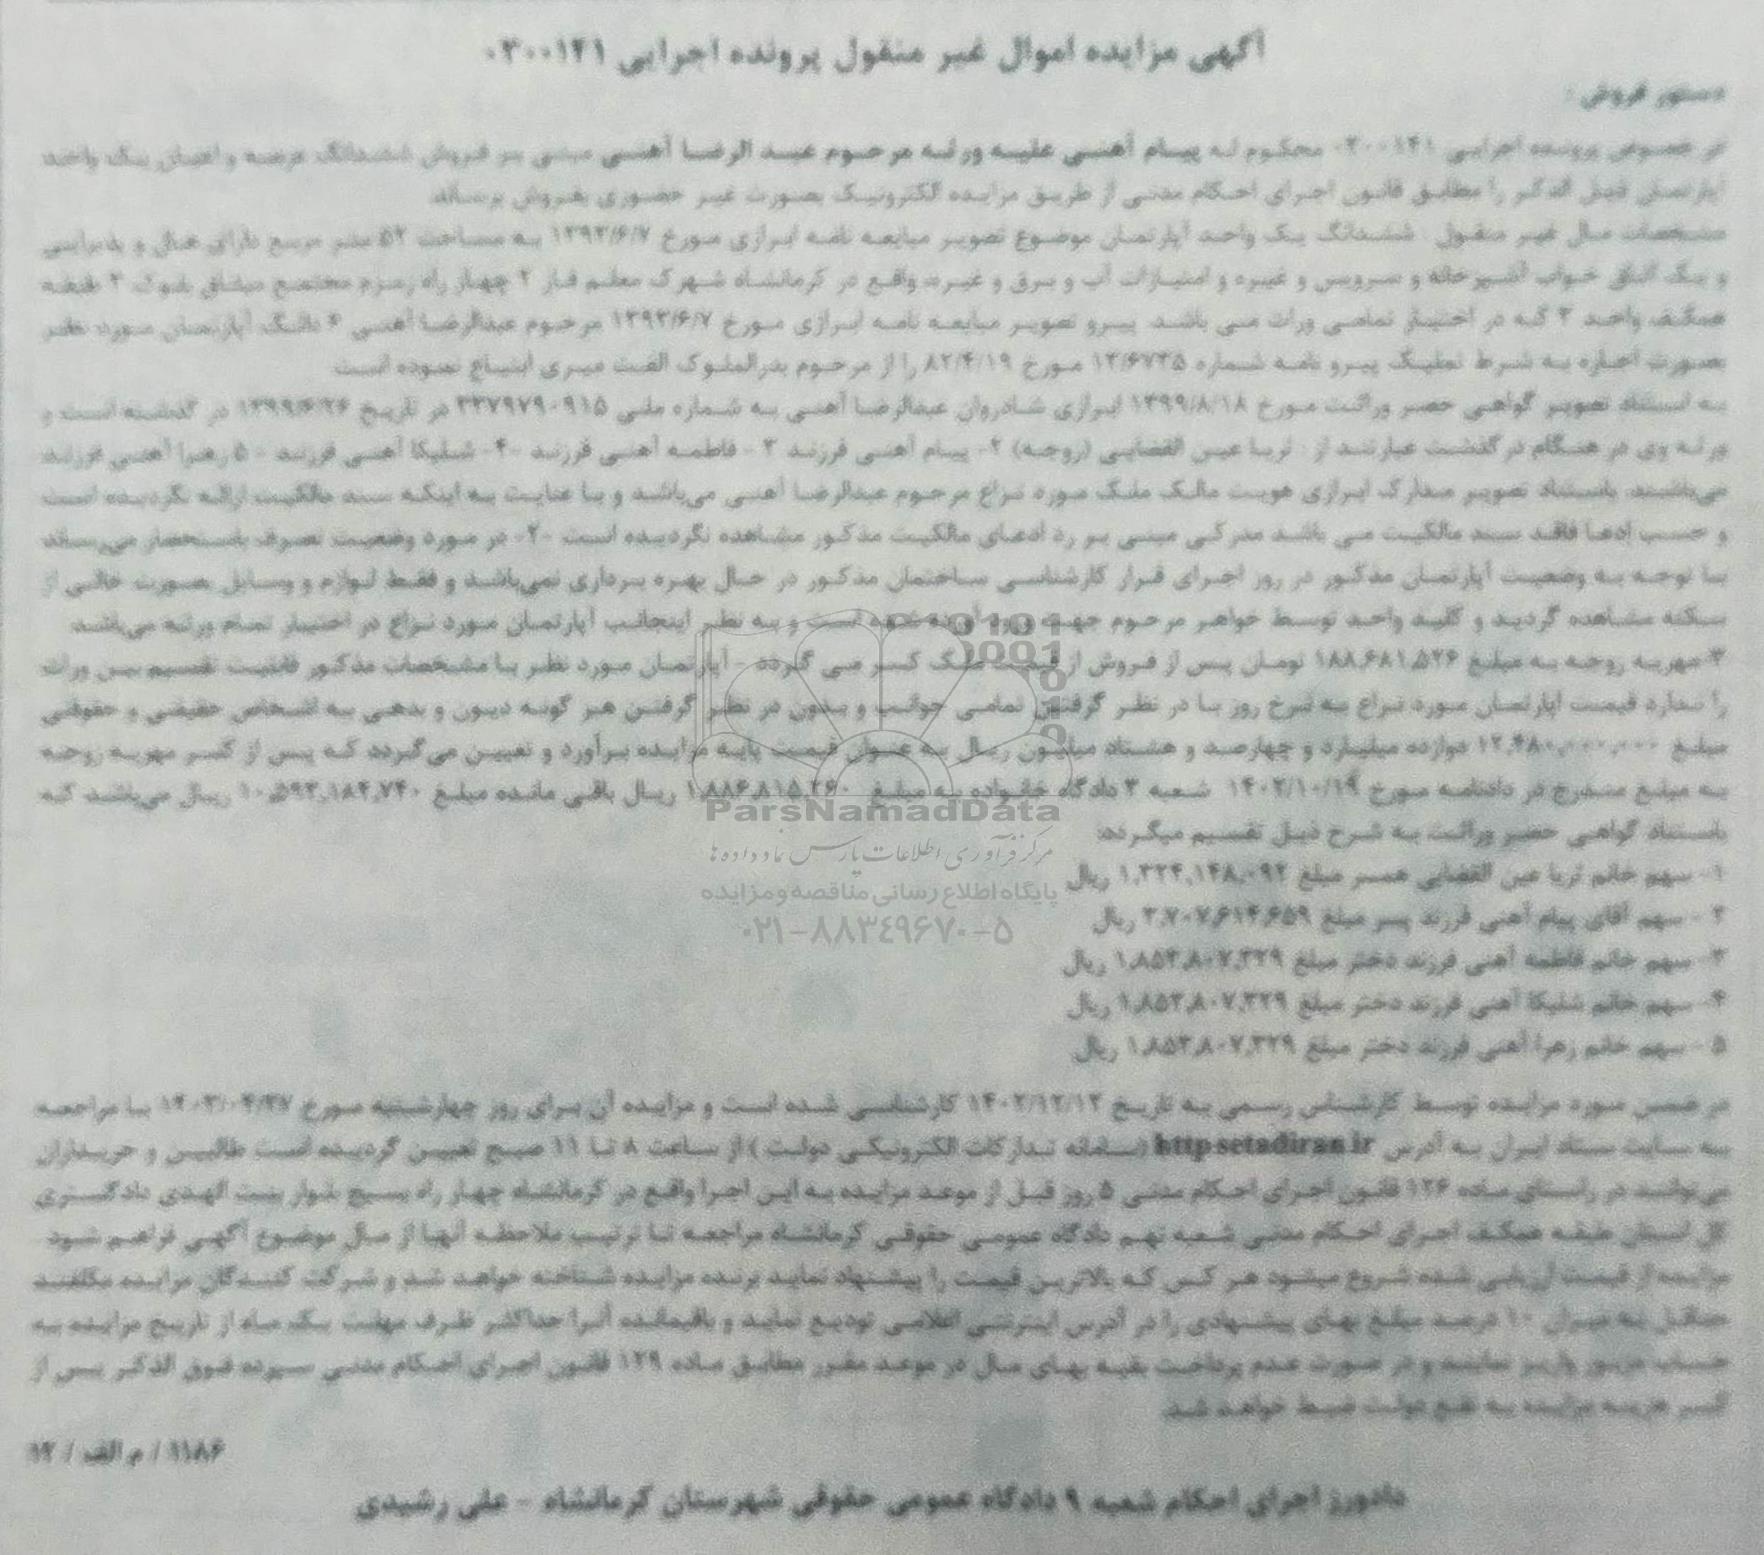 آگهی مزایده اموال غیر منقول پرونده اجرایی ۰۳۰۰۱۴۱
دستور فروش :
در خصوص پرونده اجرایی ۰۳۰۰۱۴۱ محکوم له پیام آهنی علیه ورثه مرحوم عبدالرضا آهنی مبنی بر فروش ششدانگ عرصه و اعیان یک واحد
آپارتمان فوق الذکر را مطابق قانون اجرای احکام مدنی از طریق مزایده الکترونیک بصورت غیر حضوری بفروش برساند
مشخصات مال غیر منقول : ششدانگ یک واحد آپارتمان موضوع تصویر مبایعه نامه ابرازی مورخ ۱۳۹۳/۶/۷ به مساحت ۵۲ متر مربع دارای هال و پذیرایی
و یک اتاق خواب آشپزخانه و سرویس و غیره و امتیازات آب و برق و غیره واقع در کرمانشاه شهرک معلم فاز ۲ چهار راه رزم مجتمع میثاق بلوک ۲ طبقه
همکف واحد ۳ که در اختیار تمامی وراث می باشد. پیرو تصویر مبایعه نامه ابرازی مورخ ۱۳۹۳/۶/۷ مرحوم عبدالرضا آهنی ۶ دانگ آپارتمان مورد نظر
بصورت اجاره به شرط تملیک پیرو نامه شماره ۱۳/۶۷۳۵ مورخ ۸۲/۴/۱۹ را از مرحوم بدرالملوک الفت میری ابتیاع نموده است
به استناد تصویر گواهی حصر وراثت مورخ ۱۳۹۹/۸/۱۸ ابرازی شادروان عبدالرضا آهنی به شماره ملی ۳۳۷۹۷۹۰۹۱۵ در تاریخ ۱۳۹۹/۶/۲۶ در گذشته است و
ورثه وی در هنگام درگذشت عبارتند از : ثریا عین القضایی (زوجه) ۲- پیام آهنی فرزند ۳- فاطمه آهنی فرزند ۴- شلیکا آهنی فرزند ۵- زهرا آهنی فرزند
می‌باشند. باستناد تصویر مدارک ابرازی هویت مالک ملک مورد نزاع مرحوم عبدالرضا آهنی می‌باشد و با عنایت به اینکه سند مالکیت ارائه نگردیده است
و حسب ادعا فاقد سند مالکیت می باشد مدرکی مبنی بر رد ادعای مالکیت مذکور مشاهده نگردیده است ۲- در مورد وضعیت تصرف باستحضار می‌رساند
با توجه به وضعیت آپارتمان مذکور در روز اجرای قرار کارشناسی ساختمان مذکور در حال بهره برداری نمی‌باشد و فقط لوازم و وسایل بصورت خالی از
سکنه مشاهده گردید و کلید واحد توسط خواهر مرحوم جهت ورود آورده شده است و به نظر اینجانب آپارتمان مورد نزاع در اختیار تمام ورثه می‌باشد
۳-مهریه زوجه به مبلغ ۱۸۸,۶۸۱,۵۲۶ تومان پس از فروش از قیمت ملک کسر می گردد - آپارتمان مورد نظر با مشخصات مذکور قابلیت تقسیم بین وراث
را ندارد قیمت آپارتمان مورد نزاع به نرخ روز با در نظر گرفتن تمامی جوانب و بدون در نظر گرفتن هر گونه دیون و بدهی به اشخاص حقیقی و حقوقی
مبلغ ۱۲,۴۸۰,۰۰۰,۰۰۰ دوازده میلیارد و چهارصد و هشتاد میلیون ریال به عنوان قیمت پایه مزایده برآورد و تعیین می‌گردد که پس از کسر مهریه زوجه
به مبلغ مندرج در دادنامه مورخ ۱۴۰۲/۱۰/۱۹ شعبه ۳ دادگاه خانواده به مبلغ ۱,۸۸۶,۸۱۵,۲۶۰ ریال باقی مانده مبلغ ۱۰,۵۹۳,۱۸۴,۷۴۰ ریال می‌باشد که
باستناد گواهی حصر وراثت به شرح ذیل تقسیم میگردد:
۱- سهم خانم ثریا عین القضایی همسر مبلغ ۱,۳۲۴,۱۴۸,۰۹۲ ریال
۲- سهم آقای پیام آهنی فرزند پسر مبلغ ۳,۷۰۷,۶۱۴,۶۵۹ ریال
۳- سهم خانم فاطمه آهنی فرزند دختر مبلغ ۱,۸۵۳,۸۰۷,۳۲۹ ریال
۴- سهم خانم شلیکا آهنی فرزند دختر مبلغ ۱,۸۵۳,۸۰۷,۳۲۹ ریال
۵- سهم خانم زهرا آهنی فرزند دختر مبلغ ۱,۸۵۳,۸۰۷,۳۲۹ ریال
در ضمن مورد مزایده توسط کارشناس رسمی به تاریخ ۱۴۰۲/۱۲/۱۲ کارشناسی شده است و مزایده آن برای روز چهارشنبه مورخ ۱۴۰۳/۰۴/۲۷ با مراجعه
به سایت ستاد ایران به آدرس http setadiran ir (سامانه تدارکات الکترونیکی دولت ) از ساعت ۸ تا ۱۱ صبح تعیین گردیده است طالبین و خریداران
می‌توانند در راستای ماده ۱۲۶ قانون اجرای احکام مدنی ۵ روز قبل از موعد مزایده به این اجرا واقع در کرمانشاه چهار راه بسیج بلوار بنت الهدی دادگستری
کل استان طبقه همکف اجرای احکام مدنی شعبه نهم دادگاه عمومی حقوقی کرمانشاه مراجعه تا ترتیب ملاحظه آنها از مال موضوع آگهی فراهم شود
مزایده از قیمت ارزیابی شده شروع میشود هر کس که بالاترین قیمت را پیشنهاد نماید برنده مزایده شناخته خواهد شد و شرکت کنندگان مزایده مکلفند
حداقل به میزان ۱۰ درصد مبلغ بهای پیشنهادی را در آدرس اینترنتی اعلامی تودیع نمایند و باقیمانده آنرا حداکثر ظرف مهلت یک ماه از تاریخ مزایده به
حساب مزبور واریز نمایند و در صورت عدم پرداخت بقیه بهای مال در موعد مقرر مطابق ماده ۱۲۹ قانون اجرای احکام مدنی سپرده فوق الذکر پس از
کسر هزینه مزایده به نفع دولت ضبط خواهد شد.
۱۱۸۶ / م الف / ۱۲
دادورز اجرای احکام شعبه ۹ دادگاه عمومی حقوقی شهرستان کرمانشاه - علی رشیدی
ParsNamadData
مرکز فرآوری اطلاعات پارس نماد داده ها
پایگاه اطلاع رسانی مناقصه و مزایده
۰۲۱-۸۸۳۴۹۶۷۰-۵